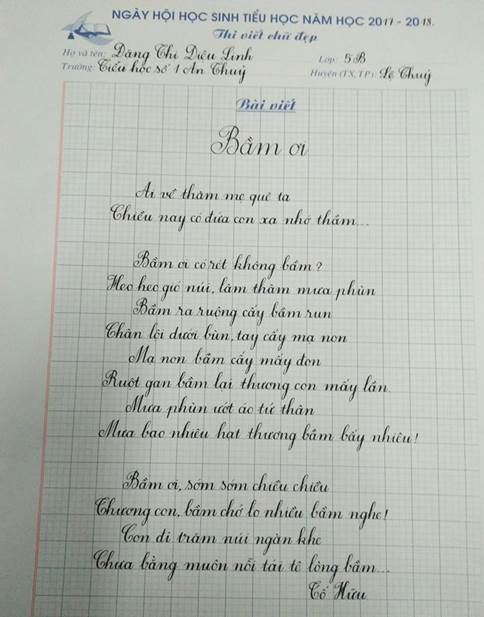 NGÀY HỘI HỌC SINH TIỂU HỌC NĂM HỌC 2017 - 2018.
Thi viết chữ đẹp
Họ và tên: Đặng Thị Diệu Linh Lớp: 5B
Trường: Tiểu học số 1 An Thuỷ Huyện (TX, TP): Lệ Thuỷ
Bài viết
Bầm ơi
Ai về thăm mẹ quê ta
Chiều nay có đứa con xa nhớ thầm...
Bầm ơi có rét không bầm?
Heo heo gió núi, lâm thâm mưa phùn
Bầm ra ruộng cấy bầm run
Chân lội dưới bùn, tay cấy mạ non
Mạ non bầm cấy mấy đon
Ruột gan bầm lại thương con mấy lần.
Mưa phùn ướt áo tứ thân
Mưa bao nhiêu hạt thương bầm bấy nhiêu!
Bầm ơi, sớm sớm chiều chiều
Thương con, bầm chớ lo nhiều bầm nghe!
Con đi trăm núi ngàn khe
Chưa bằng muôn nỗi tái tê lòng bầm...
Tố Hữu